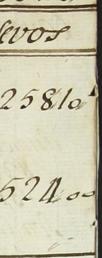 evos
2581o
524oo